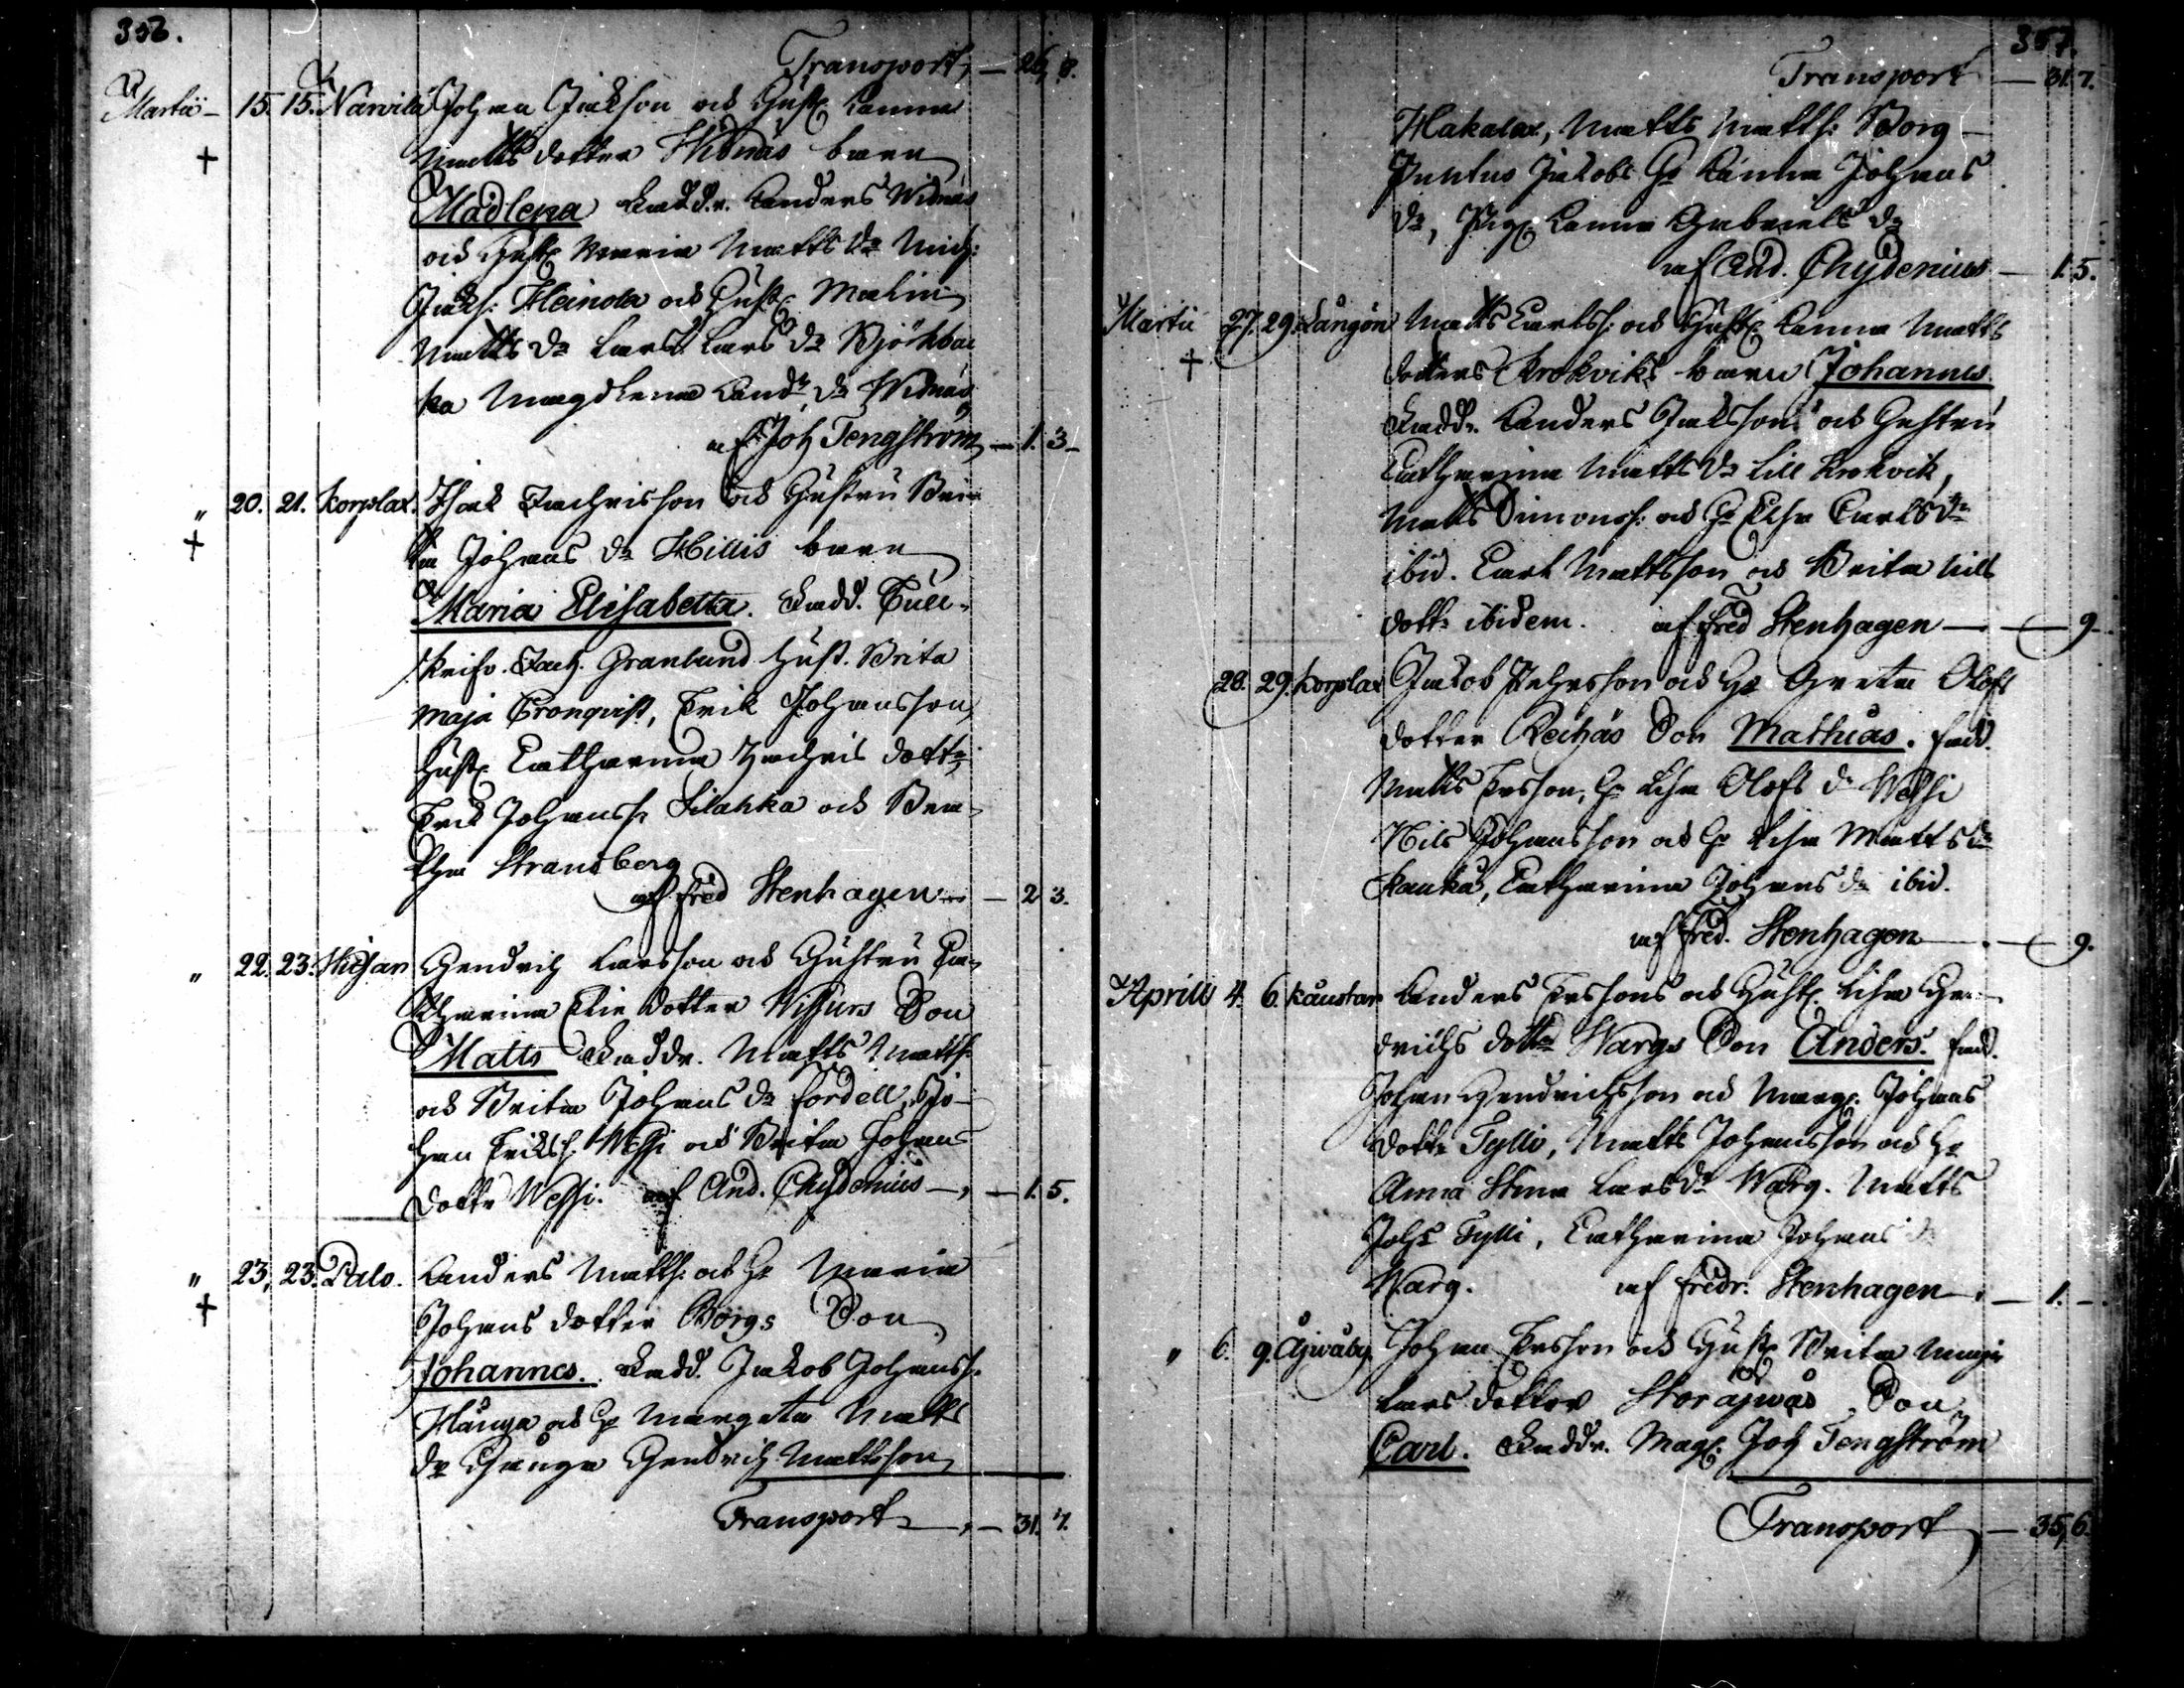 356.
Transport, — 26, 8.
Martii — 15. 15. Närvilä Johan Jakson ock Hust. Anna
Matts dotter Widnäs barn
Madlena Faddr. Anders Widnäs
ock Hust. Maria Matts dr Mich:
Jaks: Heinola ock Hust. Malin
Matts dr Lars Lars dr Björkbac
ka Magdlena And. dr Widnäs
af Joh Tengström — 1. 3 —
" 20. 21. Korplax. Isak Zachrisson ock Hustru Bri
ta Johans dr Hillis barn
Maria Elisabetta. Fadd. Tull-
skrifv. Zach. Granlund Hust. Brita
Maja Cronqvist, Erik Johansson
Hust. Catharina Zachris dottr
Erik Johanss. Silahka ock Bea-
tha Strandberg
af Fred Stenhagen — 2 3.
" 22. 23. Hendrich Larsson ock Hustru Ca-
tharina Elie dotter Wissurs Son
Matts Faddr. Matts Matts:
ock Brita Johans dr Fordell, Jo-
han Eriks: Wessi ock Brita Johans
dottr Wessi. af And. Chydenius —, — 1. 5.
" 23, 23. Palo. Anders Matts: ock H. Maria
Johans dotter Borgs Son
Johannes. Fadd. Jakob Johanss.
Hånga ock H. Margeta Matts
dr Hånga Hendrich Mattsson
Transport —, — 31. 7.
357.
Transport — 31. 7.
Hakalax, Matts Matts: Borg
Pontus Jakobs H. Anna Johans
dr, Pig. Anna Gabriels dr
af And. Chydenius — 1. 5.
Martii 27. 29. Långön Matts Carlss: ock Hust. Anna Matts
dotters Krokviks barn Johannes
Faddr. Anders Jakssons ock Hustru
Catharina Matts dr Lill Krokvik,
Matts Simonss: ock H. Lisa Carls dr
ibid. Carl Mattsson ock Brita Nils
dottr ibidem. af Fred Stenhagen — 9.
28. 29. Korplax Jakob Pehrsson ock H. Greta Olofs
dotter Reihäs Son Mathias. Fadd.
Matts Ersson, H. Lisa Olofs dr Wessi
Nils Johansson ock H. Lisa Matts dr
Kauka, Catharina Johans dr ibid.
af Fred. Stenhagen — 9.
Aprills 4. 6. Kaustar Anders Erssons ock Hust. Lisa Hen
drichs dotter Wargs Son Anders. Fadd.
Johan Hendrichsson ock Marg. Johans
dottr Tylli, Matts Johansson ock H.
Anna Stina Lars dr Warg. Matts
Johs Tylli, Catharina Johans dr
Warg. af Fredr. Stenhagen. — 1. —
" 6. 9. Åjwåby Johan Ersson ock Hust. Brita Maja
Lars dotter Storåjwås Son
Carl. Faddr. Mag. Joh Tengström
Transport — 35, 6.